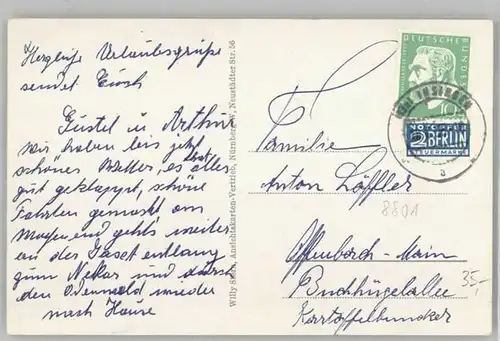 Herzliche Urlaubsgrüße
sendet Euch
Gustel u Arthur
Wir haben bis jetzt
schönes Wetter, es hat alles
gut geklappt, schöne
Fahrten gemacht am
Morgen geht's weiter
an der entlang
zum Nekar und durch
den Odenwald wieder
nach Hause
Willy Ansichtskarten-Vertrieb, Nürnberg-W, Neustädter Str. 56
Familie
Anton Löffler
8801
Offenbach-Main
Buchhügelallee
Kartoffelbuncker
35,-
DEUTSCHE BUNDESPOST
10
NOTOPFER
2 BERLIN
STEUERMARKE
a